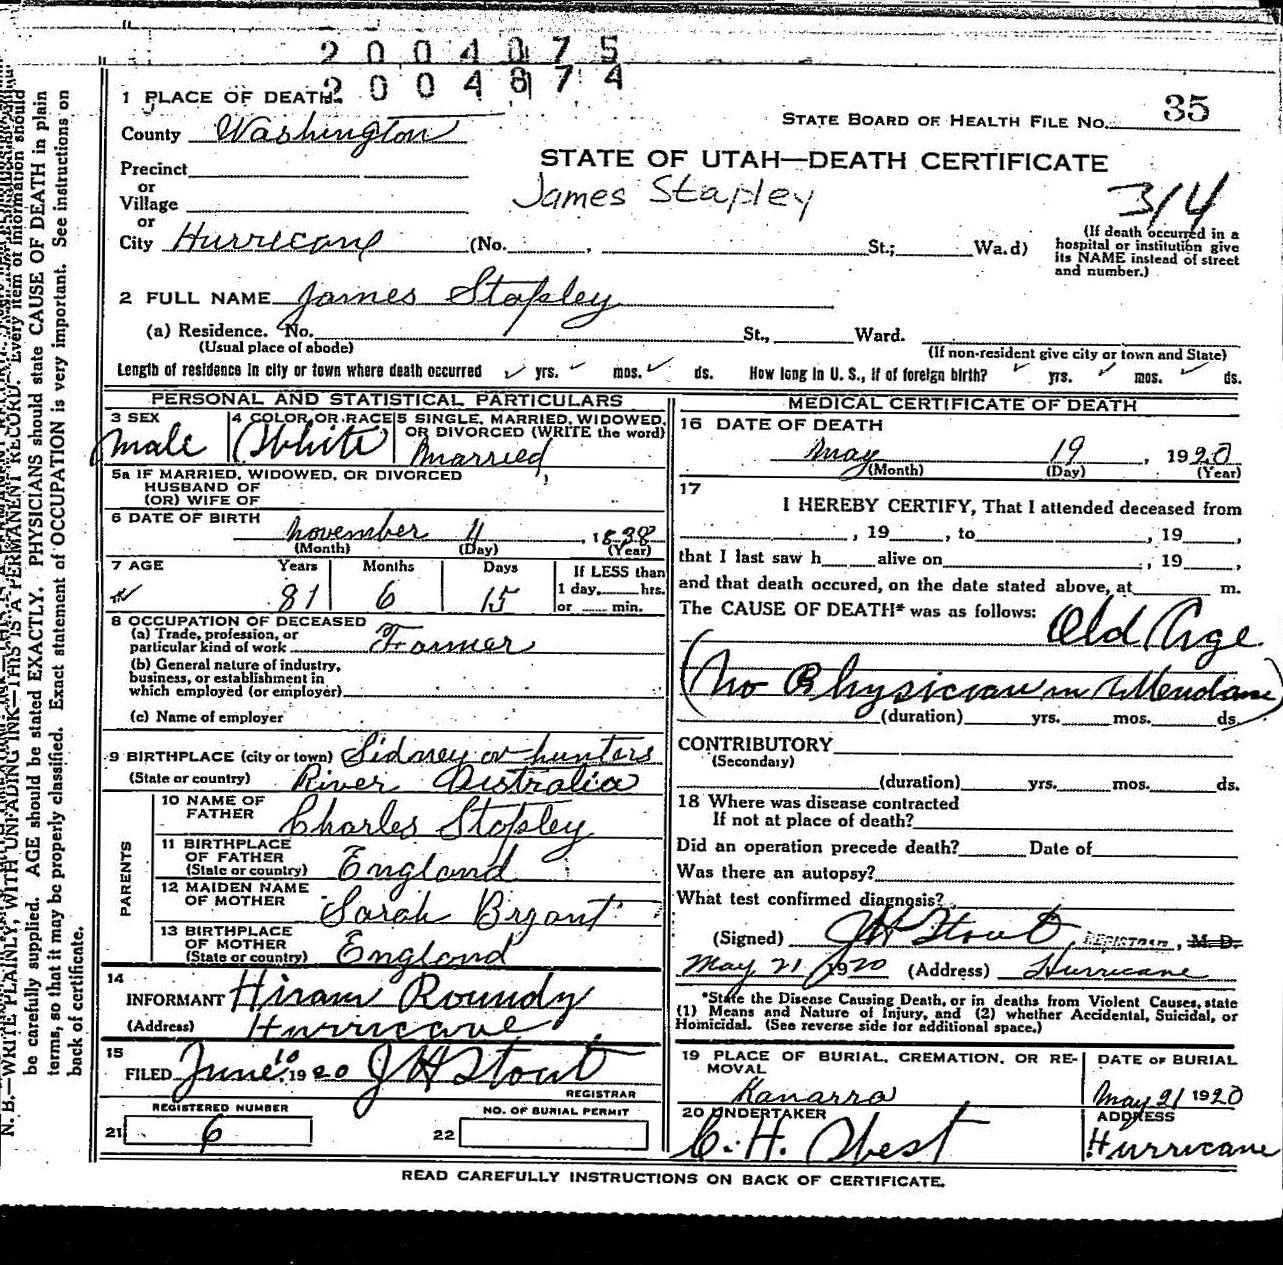 2004075
2004874
1 PLACE OF DEATH.
County Washington
STATE BOARD OF HEALTH FILE NO. 35
STATE OF UTAH—DEATH CERTIFICATE
Precinct
or
Village
or
James Stapley
314
City Hurricane (No. , St.; Wa.d)
(If death occurred in a
hospital or institution give
its NAME instead of street
and number.)
2 FULL NAME James Stapley
(a) Residence. No. St., Ward.
(Usual place of abode) (If non-resident give city or town and State)
Length of residence in city or town where death occurred ✓ yrs. ✓ mos. ✓ ds. How long in U. S., if of foreign birth? ✓ yrs. ✓ mos. ✓ ds.
PERSONAL AND STATISTICAL PARTICULARS
3 SEX 4 COLOR OR RACE 5 SINGLE, MARRIED, WIDOWED,
OR DIVORCED (WRITE the word)
Male White Married
5a IF MARRIED, WIDOWED, OR DIVORCED
HUSBAND OF
(OR) WIFE OF
6 DATE OF BIRTH
November 4, 1838
(Month) (Day) (Year)
7 AGE Years Months Days If LESS than
1 day, hrs.
or min.
81 6 15
8 OCCUPATION OF DECEASED
(a) Trade, profession, or
particular kind of work Farmer
(b) General nature of industry,
business, or establishment in
which employed (or employer)
(c) Name of employer
9 BIRTHPLACE (city or town) Sidney or hunters
(State or country) River Australia
PARENTS
10 NAME OF
FATHER Charles Stapley
11 BIRTHPLACE
OF FATHER
(State or country) England
12 MAIDEN NAME
OF MOTHER Sarah Bryant
13 BIRTHPLACE
OF MOTHER
(State or country) England
14
INFORMANT Hiram Roundy
(Address) Hurricane
15
FILED June 10, 1920 J H Stout
REGISTRAR
REGISTERED NUMBER NO. OF BURIAL PERMIT
21 6 22
MEDICAL CERTIFICATE OF DEATH
16 DATE OF DEATH
May 19, 1920
(Month) (Day) (Year)
17
I HEREBY CERTIFY, That I attended deceased from
, 19 , to , 19 ,
that I last saw h alive on , 19 ,
and that death occured, on the date stated above, at m.
The CAUSE OF DEATH* was as follows:
Old Age
(No Physician in Attendance)
(duration) yrs. mos. ds.
CONTRIBUTORY
(Secondary)
(duration) yrs. mos. ds.
18 Where was disease contracted
If not at place of death?
Did an operation precede death? Date of
Was there an autopsy?
What test confirmed diagnosis?
(Signed) J H Stout REGISTRAR, M. D.
May 21 1920 (Address) Hurricane
*State the Disease Causing Death, or in deaths from Violent Causes, state
(1) Means and Nature of Injury, and (2) whether Accidental, Suicidal, or
Homicidal. (See reverse side for additional space.)
19 PLACE OF BURIAL, CREMATION, OR RE-
MOVAL
DATE OF BURIAL
Kanarra May 21 1920
20 UNDERTAKER ADDRESS
C. H. West Hurricane
READ CAREFULLY INSTRUCTIONS ON BACK OF CERTIFICATE.
N. B.—WRITE PLAINLY, WITH UNFADING INK—THIS IS A PERMANENT RECORD. Every item of information should
be carefully supplied. AGE should be stated EXACTLY. PHYSICIANS should state CAUSE OF DEATH in plain
terms, so that it may be properly classified. Exact statement of OCCUPATION is very important. See instructions on
back of certificate.